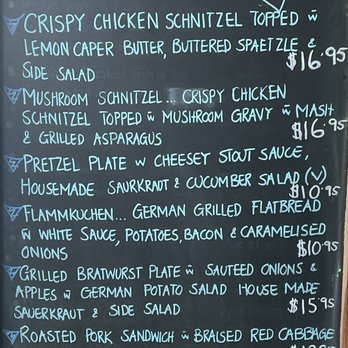 CRISPY CHICKEN SCHNITZEL TOPPED w̄
LEMON CAPER BUTTER, BUTTERED SPAETZLE &
SIDE SALAD
$16.95
MUSHROOM SCHNITZEL... CRISPY CHICKEN
SCHNITZEL TOPPED w̄ MUSHROOM GRAVY w̄ MASH
& GRILLED ASPARAGUS
$16.95
PRETZEL PLATE w CHEESEY STOUT SAUCE,
HOUSEMADE SAURKRAUT & CUCUMBER SALAD (V)
$10.95
FLAMMKUCHEN... GERMAN GRILLED FLATBREAD
w̄ WHITE SAUCE, POTATOES, BACON & CARAMELISED
ONIONS
$10.95
GRILLED BRATWURST PLATE w̄ SAUTEED ONIONS &
APPLES w̄ GERMAN POTATO SALAD HOUSE MADE
SAUERKRAUT & SIDE SALAD
$15.95
ROASTED PORK SANDWICH w̄ BRAISED RED CABBAGE